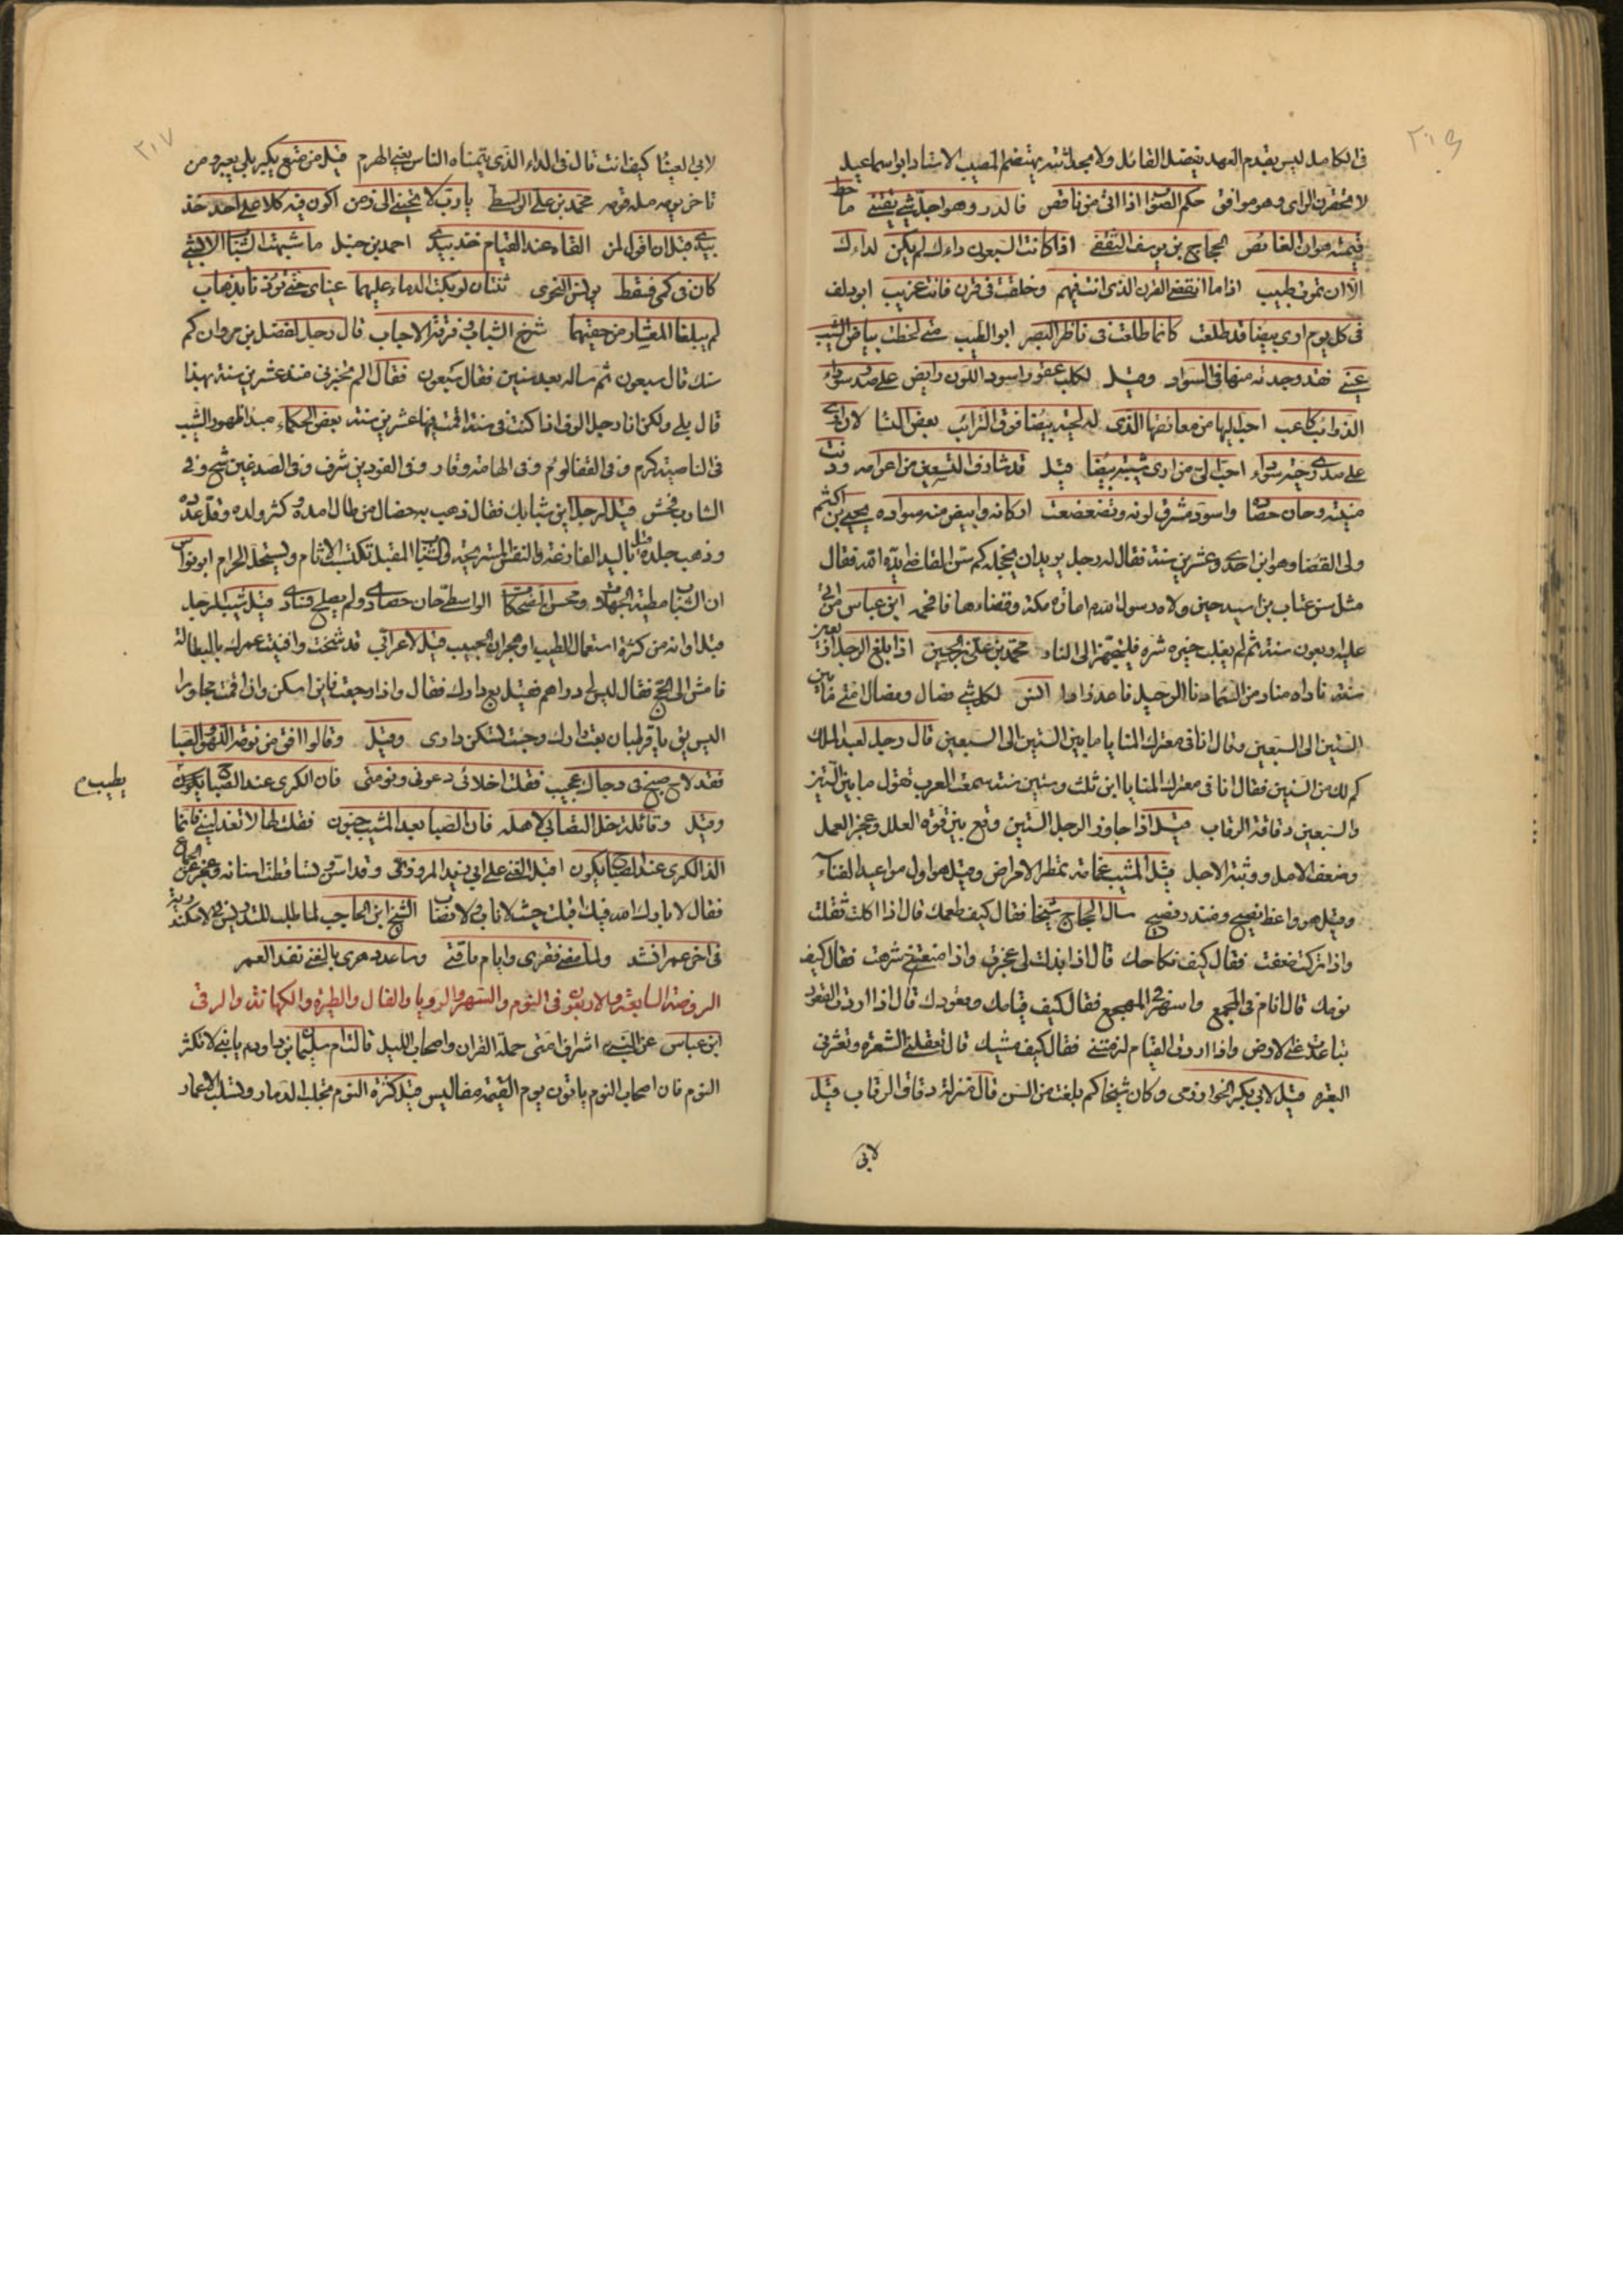 في الكامل ليس بقدم العهد يفضل القائل ولا بحداثته يهتضم المصيب الاستاد ابو اسماعيل
لا تحقرن الراي وهو موافق حكم الصواب اذا اتى من ناقص فالدر وهو اجل شي يقتنى ما حط
قيمته هوان الغائص الحجاج بن يوسف الثقفي اذا كانت السبعون داءك لم يكن لداءك
الا ان تموت طبيب اذا ما انقضى القرن الذي انت فيهم وخلفت في قرن فانت غريب ابو دلف
في كل يوم ارى بيضا قد طلعت كانما طلعت في ناظر البصر ابو الطيب متى لحظت بياض الشيب
عيني فقد وجدته منها في السواد وقيل لكلب عقور اسود اللون رابض على صدر سوداء
الذوائب كاعب احب اليها من معانقها الذي له لحية بيضا فوق الترائب بعض النسا لان ارى
على صدري حية سوداء احب الي من ارى شيبة بيضا قيل قد شارف التسعين من اعوامه ودنت
منيته وحان حصاده واسود مشرق لونه وتضعضعت اركانه وابيض منه سواده يحيى بن اكثم
ولى القضا وهو ابن احدى وعشرين سنة فقال له رجل يريد ان يخجله كم سن القاضي ايده الله فقال
مثل سن عتاب بن اسيد حين ولاه رسول الله امارة مكة وقضاءها فافحمه ابن عباس من اتى
عليه اربعون سنة ثم لم يغلب خيره شره فليتجهز الى النار محمد بن علي بن الحسين اذا بلغ الرجل اربعين
سنة ناداه مناد من السماء دنا الرحيل فاعد زادا انس لكل شي فضال وفضال امتي ما بين
الستين الى السبعين وقال انا في معترك المنايا ما بين الستين الى السبعين قال رجل لعبد الملك
كم لك من السنين فقال انا في معترك المنايا ابن ثلث وستين سنة سمعت العرب تقول ما بين الستين
والسبعين دقاقة الرقاب قيل اذا جاوز الرجل الستين وقع بين قوة العلل وعجز العمل
وضعف الامل ووثبة الاجل قيل المشيب غمامة تمطر الامراض وقيل هو اول مواعيد الفناء
وقيل هو واعظ نصيح ومنذر فصيح سال الحجاج شيخا فقال كيف طعمك قال اذا اكلت ثقلت
واذا تركت ضعفت فقال كيف نكاحك قال اذا بذلت لي عجزت واذا منعتني شرهت فقال كيف
نومك قال انام في المجمع واسهر في المهجع فقال كيف قيامك وقعودك قال اذا اردت القعود
تباعدت عني الارض واذا اردت القيام لزمتني فقال كيف مشيك قال تعقلني الشعرة وتعثرني
البعرة قيل لابي بكر الخوارزمي وكان شيخا كم بلغت من السن قال منزلة دقاق الرقاب قيل
لابي
لابي العينا كيف انت قال في الداء الذي يتمناه الناس يعني الهرم قيل من متع بكبر بلي بعبر ومن
تاخر يومه مله قومه محمد بن علي الواسطي يا رب لا تحيني الى زمن اكون فيه كلا على احد خذ
بيدي قبل ان اقول لمن القاه عند القيام خذ بيدي احمد بن حنبل ما شبهت الشباب الا بشي
كان في كمي فسقط يونس النحوي ثنتان لو بكت الدماء عليهما عيناي حتى توذنا بذهاب
لم يبلغا المعشار من حقيهما شرخ الشباب وفرقة الاحباب قال رجل لفضل بن مروان كم
سنك قال سبعون ثم ساله بعد سنين فقال سبعون فقال الم تخبرني منذ عشرين سنة بهذا
قال بلى ولكن انا رجل الوف اذا كنت في سنة اقمت فيها عشرين سنة بعض الحكماء مبدا ظهور الشيب
في الناصية كرم وفي القفا لؤم وفي الهامة وقار وفي الفودين شرف وفي الصدغين شح وفي
الشارب فحش قيل لرجل اين شبابك فقال ذهب به خصال من طال امده وكثر ولده وقل عدده
وذهب جلده قيل باليد الفارغة والنفس المستريحة والشباب المقبل تكتسب الاثام ويستحل الحرام ابو نواس
ان الشباب مطية الجهل ومحسن الضحكات الواسطي حان حصادي ولم يصلح فسادي قيل شيب الرجل
قبل اوانه من كثرة استعمال الطيب او هجران الحبيب قيل لاعرابي قد شخت وافنيت عمرك بالبطالة
فامش الى الحج فقال ليس لي دراهم فقيل بع دارك فقال واذا رجعت فاين اسكن واذا اقمت مجاورا
اليس يق يا قرلمبان بعت دارك وجئت تسكن داري وقيل وقالوا افق من نومة اللهو والصبا
فقد لاح صبح في دجاك عجيب فقلت اخلائي دعوني ونومتي فان الكرى عند الصباح يكون
يطيب م
وقيل وقائلة خل التصابي لاهله فان الصبا بعد المشيب جنون فقلت لها لا تعذليني فانما
الذ الكرى عند الصباح يكون اقبل الغنى على ابي زيد المروزي وقد اسن وتساقطت اسنانه وعجز عن الجماع
فقال لا بارك الله فيك اقبلت حيث لا ناب ولا نصاب الشيخ ابن الحاجب لما طلب للتدريس في الاسكندرية
في اخر عمره انشد ولما مضى فقري وايام فاقتي وساعد دهري بالغنى نفد العمر
الروضة السابعة والاربعون في النوم والسهر والرؤيا والفال والطيرة والكهانة والرقى
ابن عباس عن النبي اشراف امتي حملة القران واصحاب الليل قالت ام سليمان بن داود يا بني لا تكثر
النوم فان اصحاب النوم ياتون يوم القيمة مفاليس قيل كثرة النوم تجلب الدمار وتسلب الاعمار